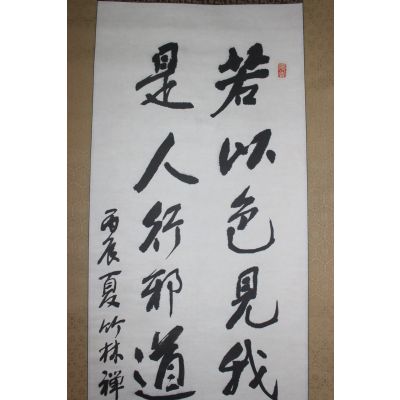 若以色見我
是人行邪道
丙辰夏竹林禅